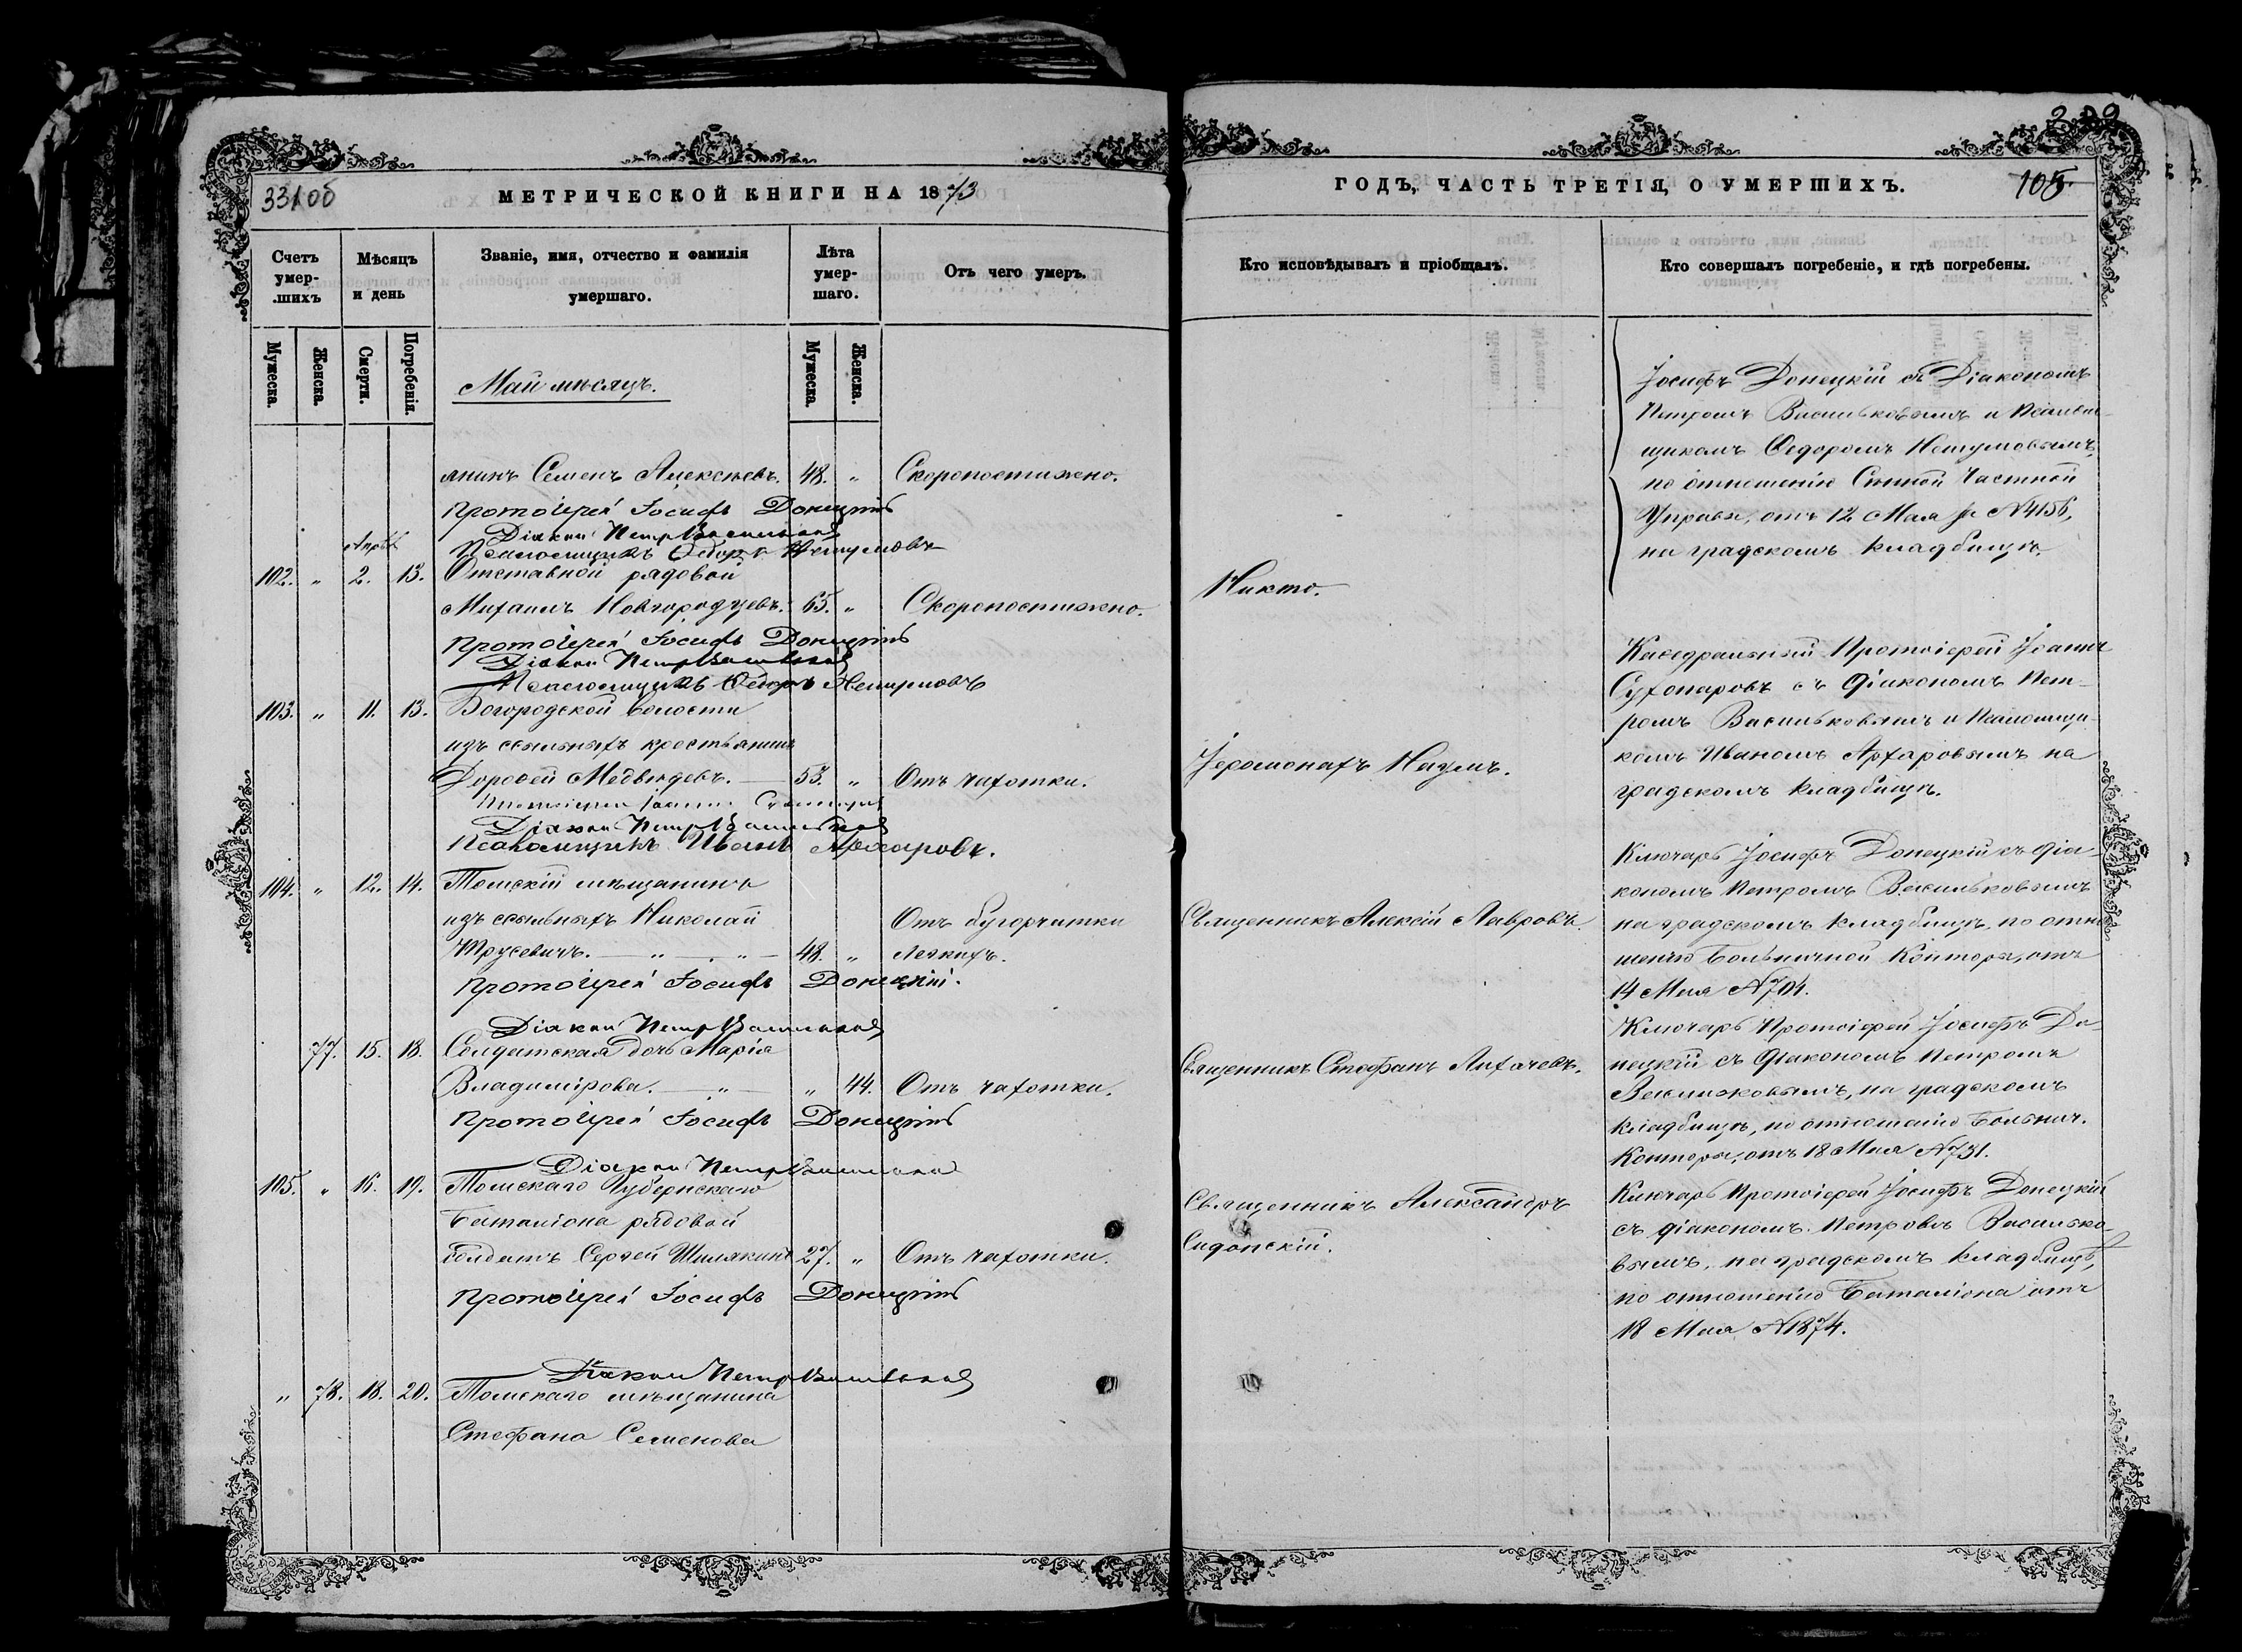 33106
МЕТРИЧЕСКОЙ КНИГИ НА 1873
Счетъ умер-шихъ
Мѣсяцъ и день
Званіе, имя, отчество и фамилія умершаго.
Лѣта умер-шаго.
Отъ чего умеръ.
Мужеска.
Женска.
Смерти.
Погребенія.
Май мѣсяцъ.
Мужеска.
Женска.
янинъ Семенъ Алексѣевъ. 48. „ Скоропостижно.
Протоіерей Іосифъ Донецкій
Діаконъ Петръ Васильковъ
Псаломщикъ Ѳедоръ
102. „ 2. 13. Отставной рядовой
Михаилъ Новгородцевъ. 65. „ Скоропостижно.
Протоіерей Іосифъ Донецкій
Діаконъ Петръ Васильковъ
Псаломщикъ Ѳедоръ
103. „ 11. 13. Богородской волости
изъ ссыльныхъ крестьянинъ
Дороѳей Медвѣдевъ. 53. „ Отъ чахотки.
Протоіерей Іоаннъ
Діаконъ Петръ Васильковъ
Псаломщикъ Иванъ
104. „ 12. 14. Томскій мѣщанинъ
изъ ссыльныхъ Николай Отъ бугорчатки
48. „ легкихъ.
Протоіерей Іосифъ Донецкій.
Діаконъ Петръ Васильковъ
77. 15. 18. Солдатская дочь Марія
Владимірова. „ „ 44. Отъ чахотки.
Протоіерей Іосифъ Донецкій
Діаконъ Петръ Васильковъ
105. „ 16. 19. Томскаго Губернскаго
Баталіона рядовой
солдатъ Сергей Шилякинъ 27. „ Отъ чахотки.
Протоіерей Іосифъ Донецкій
Діаконъ Петръ Васильковъ
„ 78. 18. 20. Томскаго мѣщанина
Стефана Семенова
ГОДЪ, ЧАСТЬ ТРЕТІЯ, О УМЕРШИХЪ.
105.
Кто исповѣдывалъ и пріобщалъ.
Кто совершалъ погребеніе, и гдѣ погребены.
Іосифъ Донецкій съ Діакономъ
Петромъ Васильковымъ и Псалом-
щикомъ Ѳедоромъ
по отношенію Сѣнной Частной
Управы, отъ 12 Мая за № 4156,
на градскомъ кладбищѣ.
Никто.
Каѳедральный Протоіерей Іоаннъ
Сухопаровъ съ діакономъ Пет-
ромъ Васильковымъ и Псаломщи-
комъ Иваномъ на
градскомъ кладбищѣ.
Іеромонахъ Наумъ.
Ключарь Іосифъ Донецкій съ діа-
кономъ Петромъ Васильковымъ
на градскомъ кладбищѣ, по отно-
шенію Больничной Конторы, отъ
14 Мая № 704.
Священникъ Алексій Лавровъ.
Ключарь Протоіерей Іосифъ До-
нецкій съ діакономъ Петромъ
Васильковымъ, на градскомъ
кладбищѣ, по отношенію Больнич.
Конторы, отъ 18 Мая № 731.
Священникъ Стефанъ Лихачевъ.
Ключарь Протоіерей Іосифъ Донецкій
съ діакономъ Петромъ Василько-
вымъ, на градскомъ кладбищѣ,
по отношенію Баталіона отъ
18 Мая № 1874.
Священникъ Александръ
Сидонскій.